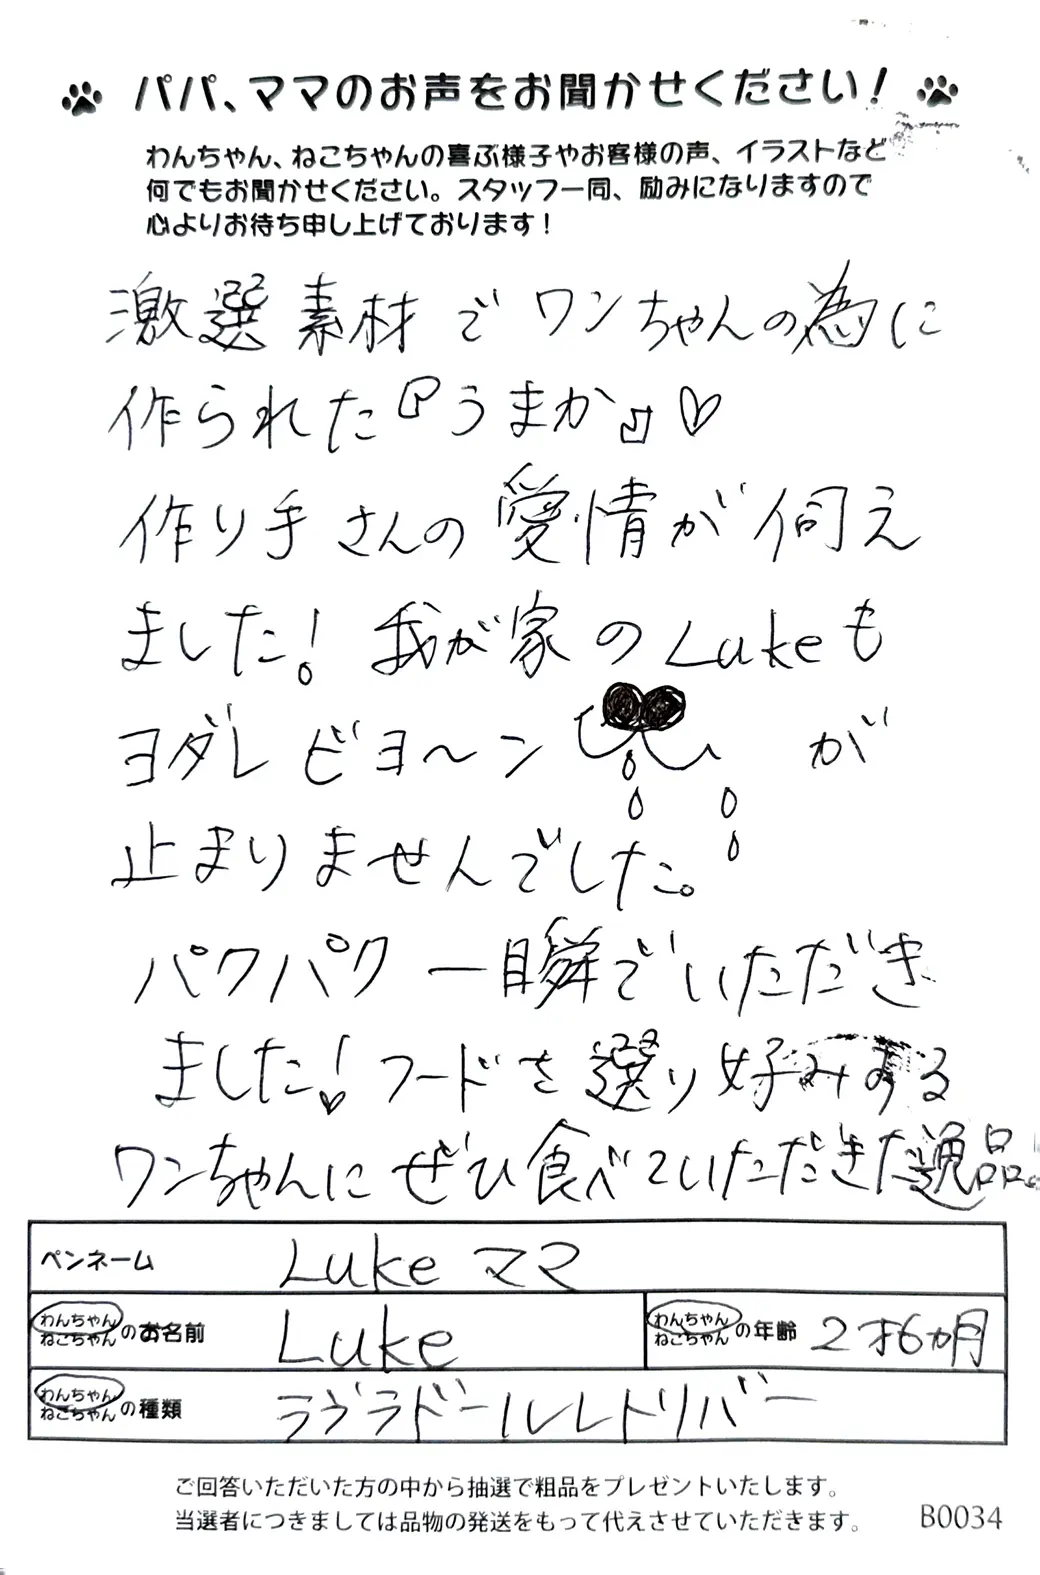 パパ、ママのお声をお聞かせください!
わんちゃん、ねこちゃんの喜ぶ様子やお客様の声、イラストなど
何でもお聞かせください。スタッフ一同、励みになりますので
心よりお待ち申し上げております!
激選素材でワンちゃんの為に
作られた『うまか』♡
作り手さんの愛情が伺え
ました!我が家のLukeも
ヨダレビヨ〜ン が
止まりませんでした。
パクパク一瞬でいただき
ました!フードを選り好みする
ワンちゃんにぜひ食べていただきた逸品。
ペンネーム Lukeママ
わんちゃん ねこちゃん のお名前 Luke わんちゃん ねこちゃん の年齢 2才6ヵ月
わんちゃん ねこちゃん の種類 ラヴラドールレトリバー
ご回答いただいた方の中から抽選で粗品をプレゼントいたします。
当選者につきましては品物の発送をもって代えさせていただきます。 B0034